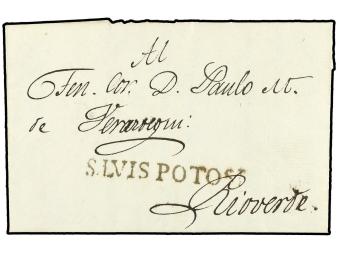 Al
Ten. Cor. D. Paulo M.
de Verastegui.
S. LVIS POTOSI
Rioverde.